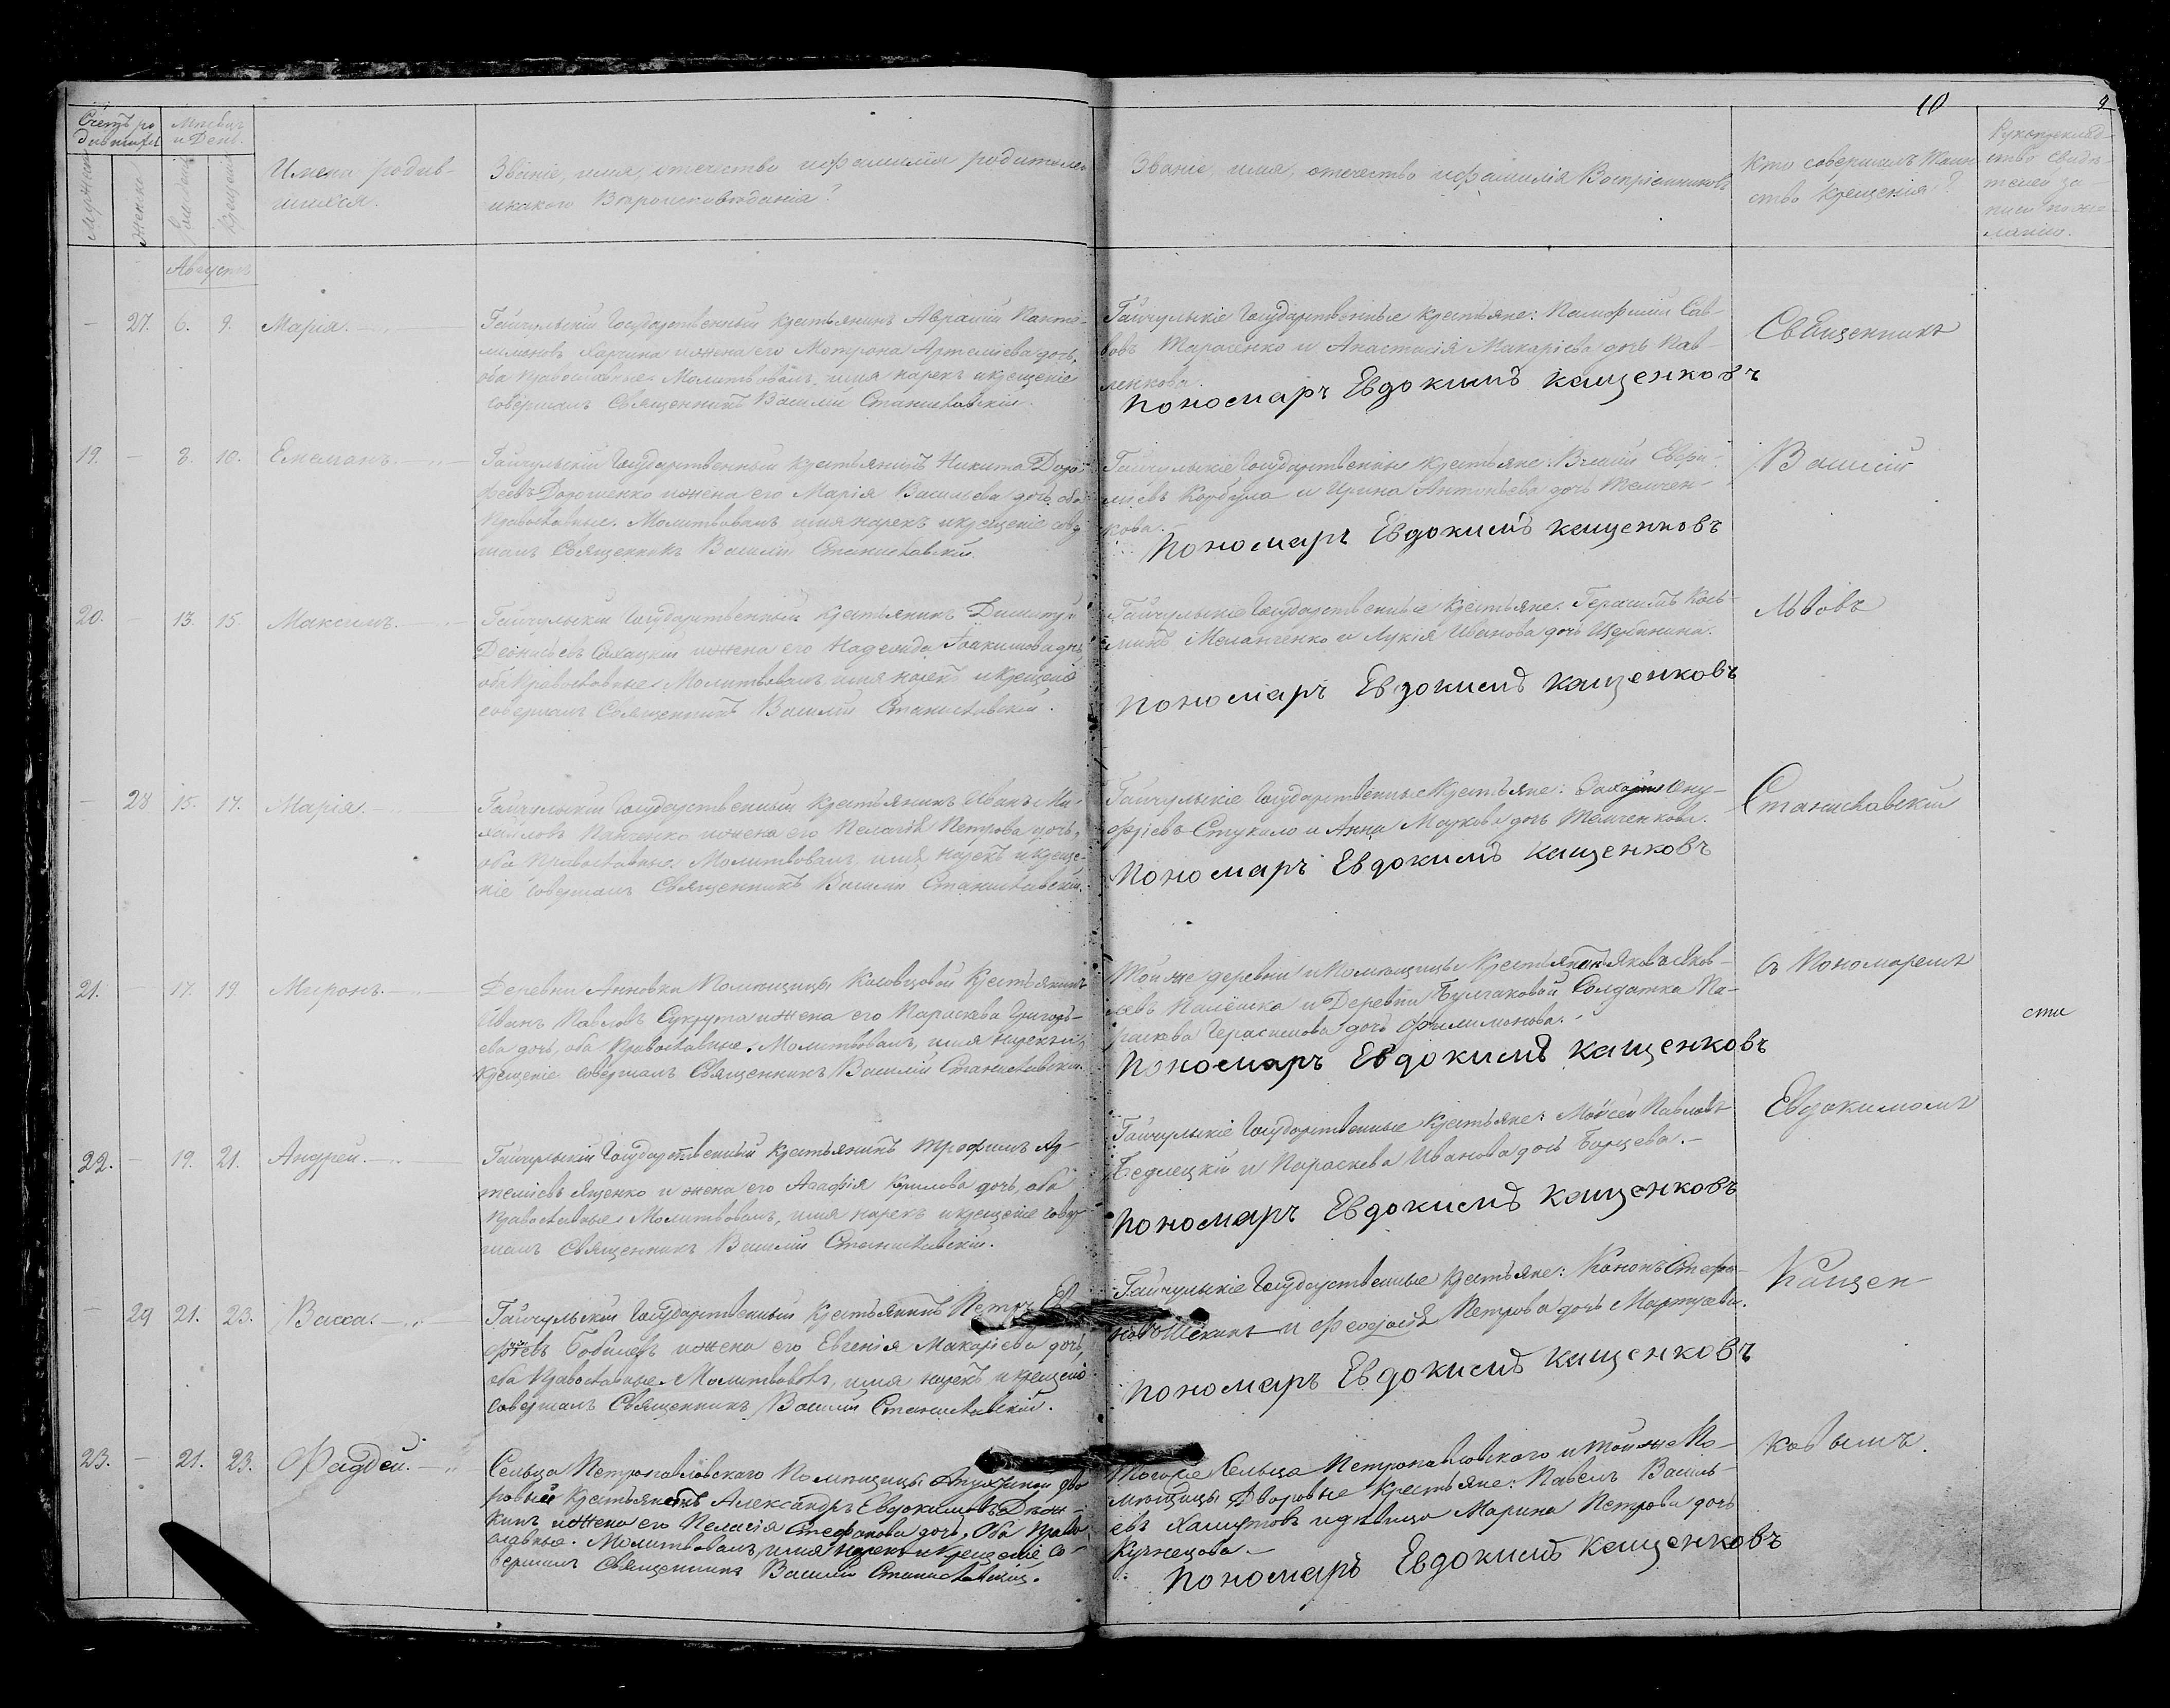 10
9
Счетъ ро
дившихся
Мѣсяцъ
и День.
Мужеска
Женска
Рожденія
Крещенія
Имена родив-
шихся.
Званіе, имя, отечество и фамилія родителей
и какого Вѣроисповѣданія?
Званіе, имя, отечество и фамилія Воспріемниковъ
Кто совершалъ Таин
ство Крещенія?
Рукоприклад-
ство свидѣ-
телей за-
писи по же-
ланію.
Августъ
— 27. 6. 9. Марія.
Гайчульскій Государственный крестьянинъ Аврамій Панте-
лимоновъ Харчина и жена его Мотрона Артеміева дочь,
оба православные. Молитвовалъ, имя нарекъ и крещеніе
совершалъ Священникъ Василій Станиславскій.
Гайчульскіе Государственные крестьяне: Памфилій Сав-
вовъ Тарасенко и Анастасія Макаріева дочь Пав-
ленкова.
Пономарь Евдокимъ Кащенковъ
Священникъ
19. — 8. 10. Емеліанъ.
Гайчульскій Государственный крестьянинъ Никита Доро-
феевъ Дорошенко и жена его Марія Васильева дочь, оба
православные. Молитвовалъ, имя нарекъ и крещеніе совер
шалъ Священникъ Василій Станиславскій.
Гайчульскіе Государственные крестьяне:
и Ирина Антоньева дочь Темчен-
кова.
Пономарь Евдокимъ Кащенковъ
Василій
20. — 13. 15. Максимъ.
Гайчульскій Государственный крестьянинъ Димитрій
Діонисьевъ и жена его Надежда Іоакимова дочь
оба православные. Молитвовалъ, имя нарекъ и крещеніе
совершалъ Священникъ Василій Станиславскій.
Гайчульскіе Государственные крестьяне: Герасимъ Кось-
минъ и Лукія Иванова дочь Щербинина.
Пономарь Евдокимъ Кащенковъ
Львовъ
— 28 15. 17. Марія.
Гайчульскій Государственный крестьянинъ Иванъ Ми-
хайловъ Панченко и жена его Пелагія Петрова дочь,
оба православные. Молитвовалъ, имя нарекъ и креще-
ніе совершалъ Священникъ Василій Станиславскій.
Гайчульскіе Государственные крестьяне: Захарій Ону-
фріевъ Стукало и Анна Маркова дочь Темченкова.
Пономарь Евдокимъ Кащенковъ
Станиславскій
21. 17. 19. Миронъ.
Деревни Анновка Помѣщицы Крестьянинъ
Иванъ Павловъ Сукрута и жена его Параскева Григорь-
ева дочь, оба православные. Молитвовалъ, имя нарекъ и
крещеніе совершалъ Священникъ Василій Станиславскій.
Той же деревни и Помѣщицы Крестьянинъ Яковъ Яков-
левъ и Деревни Булгаковой Солдатка Па-
раскева Герасимова дочь Филимонова.
Пономарь Евдокимъ Кащенковъ
съ Пономаремъ
сти
22. — 19. 21. Андрей.
Гайчульскій Государственный крестьянинъ Трофимъ Ар-
теміевъ Яценко и жена его Агафія Кирилова дочь, оба
православные. Молитвовалъ, имя нарекъ и крещеніе совер
шалъ Священникъ Василій Станиславскій.
Гайчульскіе Государственные крестьяне: Мойсей Павловъ
Бедлецкій и Параскева Иванова дочь Борщева.
Пономарь Евдокимъ Кащенковъ
Евдокимомъ
— 29 21. 23. Васса.
Гайчульскій Государственный крестьянинъ Петръ Ев
фіевъ и жена его Евгенія Макаріева дочь,
оба православные. Молитвовалъ, имя нарекъ и крещеніе
совершалъ Священникъ Василій Станиславскій.
Гайчульскіе Государственные крестьяне: Кононъ Стефа-
новъ Шекинъ и Феодосія Петрова дочь
Пономарь Евдокимъ Кащенковъ
Кащен-
23. — 21. 23. Фаддей.
Сельца Петропавловскаго Помѣщицы дво
ровый крестьянинъ Александръ Евдокимовъ
кинъ и жена его Пелагія Стефанова дочь, оба право
славные. Молитвовалъ, имя нарекъ и крещеніе со-
вершалъ Священникъ Василій Станиславскій.
Того же Сельца Петропавловского и той же По-
мѣщицы Дворовые крестьяне: Павелъ Василь-
евъ и дѣвица Марина Петрова дочь
Кузнецова.
Пономарь Евдокимъ Кащенковъ
ковымъ.